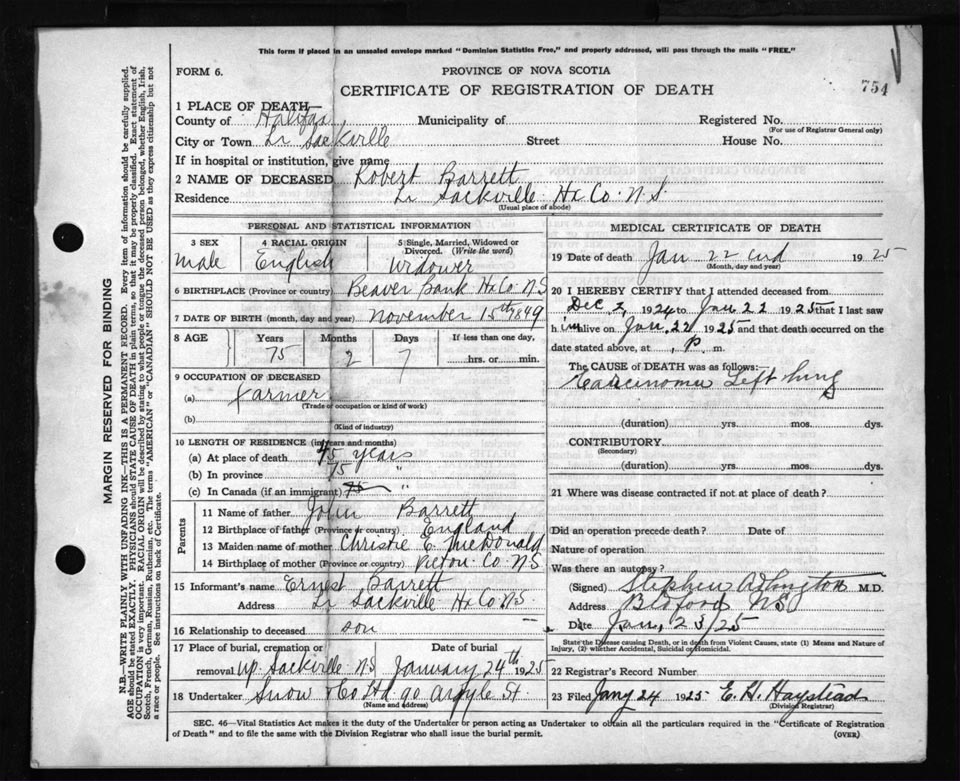 This form if placed in an unsealed envelope marked "Dominion Statistics Free," and properly addressed, will pass through the mails "FREE."
FORM 6.
PROVINCE OF NOVA SCOTIA
754
CERTIFICATE OF REGISTRATION OF DEATH
1 PLACE OF DEATH—
County of Halifax, Municipality of Registered No.
(For use of Registrar General only)
City or Town Lr Sackville Street House No.
If in hospital or institution, give name
2 NAME OF DECEASED Robert Barrett
Residence Lr Sackville Hx Co. N S.
(Usual place of abode)
PERSONAL AND STATISTICAL INFORMATION
3 SEX 4 RACIAL ORIGIN 5 Single, Married, Widowed or Divorced. (Write the word)
Male English Widower
6 BIRTHPLACE (Province or country) Beaver Bank Hx Co. N S
7 DATE OF BIRTH (month, day and year) November 15th 1849
8 AGE Years Months Days If less than one day,
75 2 7 hrs. or min.
9 OCCUPATION OF DECEASED
(a) Farmer
(Trade or occupation or kind of work)
(b)
(Kind of industry)
10 LENGTH OF RESIDENCE (in years and months)
(a) At place of death 75 years
(b) In province 75 "
(c) In Canada (if an immigrant) 75 "
Parents
11 Name of father John Barrett
12 Birthplace of father (Province or country) England
13 Maiden name of mother Christie E. McDonald
14 Birthplace of mother (Province or country) Pictou Co. N S
15 Informant's name Ernest Barrett
Address Lr Sackville Hx Co. N S.
16 Relationship to deceased son
17 Place of burial, cremation or Date of burial
removal Up. Sackville N S January 24th 1925
18 Undertaker Snow & Co Ltd 90 Argyle St
(Name and address)
MEDICAL CERTIFICATE OF DEATH
19 Date of death Jan 22nd 1925
(Month, day and year)
20 I HEREBY CERTIFY that I attended deceased from
1924 to Jan 22 1925 that I last saw
him alive on Jan. 22 1925 and that death occurred on the
date stated above, at , P. m.
The CAUSE OF DEATH was as follows:
Carcinoma Left lung
(duration) yrs. mos. dys.
CONTRIBUTORY
(Secondary)
(duration) yrs. mos. dys.
21 Where was disease contracted if not at place of death?
Did an operation precede death? Date of
Nature of operation
Was there an autopsy?
(Signed) Stephen M.D.
Address Bedford N S
Date Jan, 23/25
State the Disease causing Death, or in death from Violent Causes, state (1) Means and Nature of Injury, (2) whether Accidental, Suicidal or Homicidal.
22 Registrar's Record Number
23 Filed Jany 24 1925 E. H. Haystead
(Division Registrar)
SEC. 46—Vital Statistics Act makes it the duty of the Undertaker or person acting as Undertaker to obtain all the particulars required in the "Certificate of Registration
of Death" and to file the same with the Division Registrar who shall issue the burial permit.
(OVER)
MARGIN RESERVED FOR BINDING
N.B.—WRITE PLAINLY WITH UNFADING INK—THIS IS A PERMANENT RECORD. Every item of information should be carefully supplied.
AGE should be stated EXACTLY. PHYSICIANS should STATE CAUSE OF DEATH in plain terms, so that it may be properly classified. Exact statement of
OCCUPATION is very important. RACIAL ORIGIN will be described by stating to what people or tongue the deceased person belonged, whether English, Irish,
Scotch, French, German, Russian, Ruthenian, etc. The terms "AMERICAN" or "CANADIAN" SHOULD NOT BE USED as they express citizenship but not
a race or people. See instructions on back of Certificate.